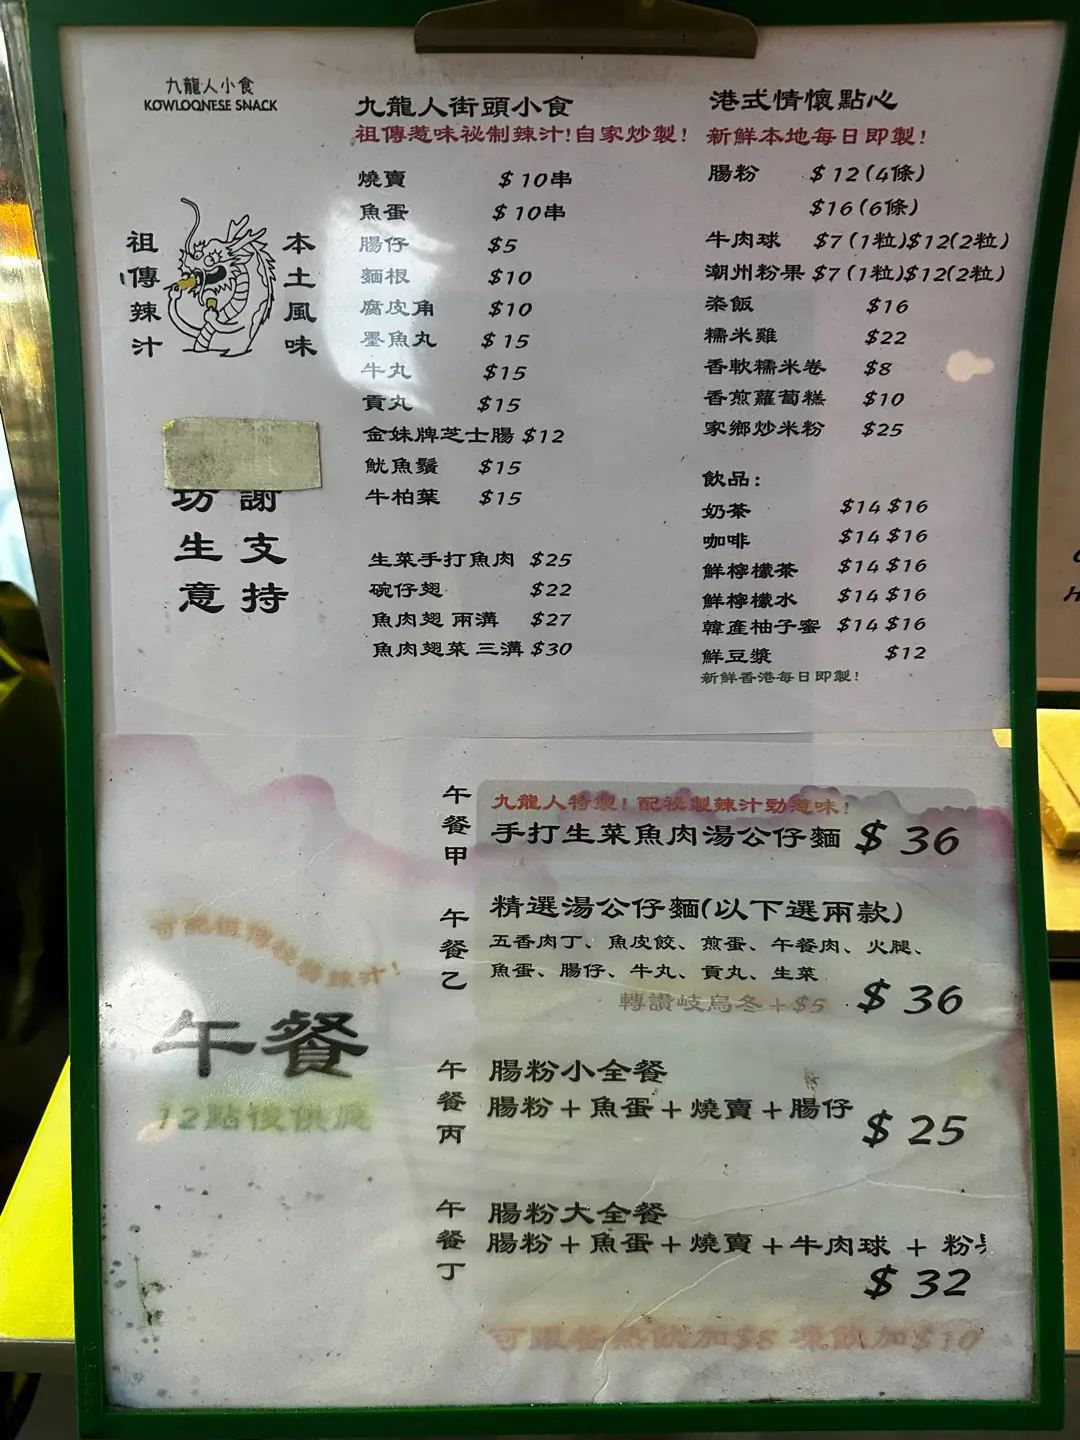 九龍人小食
KOWLOONESE SNACK
祖傳辣汁
本土風味
謝
坊
支持
生意
九龍人街頭小食
祖傳惹味祕制辣汁!自家炒製!
燒賣 $10串
魚蛋 $10串
腸仔 $5
麵根 $10
腐皮角 $10
墨魚丸 $15
牛丸 $15
貢丸 $15
金妹牌芝士腸 $12
魷魚鬚 $15
牛柏葉 $15
生菜手打魚肉 $25
碗仔翅 $22
魚肉翅 兩溝 $27
魚肉翅菜 三溝 $30
港式情懷點心
新鮮本地每日即製!
腸粉 $12(4條)
$16(6條)
牛肉球 $7(1粒)$12(2粒)
潮州粉果 $7(1粒)$12(2粒)
粢飯 $16
糯米雞 $22
香軟糯米卷 $8
香煎蘿蔔糕 $10
家鄉炒米粉 $25
飲品:
奶茶 $14 $16
咖啡 $14 $16
鮮檸檬茶 $14 $16
鮮檸檬水 $14 $16
韓產柚子蜜 $14 $16
鮮豆漿 $12
新鮮香港每日即製!
可配祖傳
辣汁!
午餐
12點後供應
午餐甲
九龍人特製!配祕製辣汁勁惹味!
手打生菜魚肉湯公仔麵 $36
午餐乙
精選湯公仔麵(以下選兩款)
五香肉丁、魚皮餃、煎蛋、午餐肉、火腿、
魚蛋、腸仔、牛丸、貢丸、生菜
轉讚岐烏冬+$5 $36
午餐丙
腸粉小全餐
腸粉+魚蛋+燒賣+腸仔 $25
午餐丁
腸粉大全餐
腸粉+魚蛋+燒賣+牛肉球 + 粉
$32
可跟餐熱飲加$8 凍飲加$10